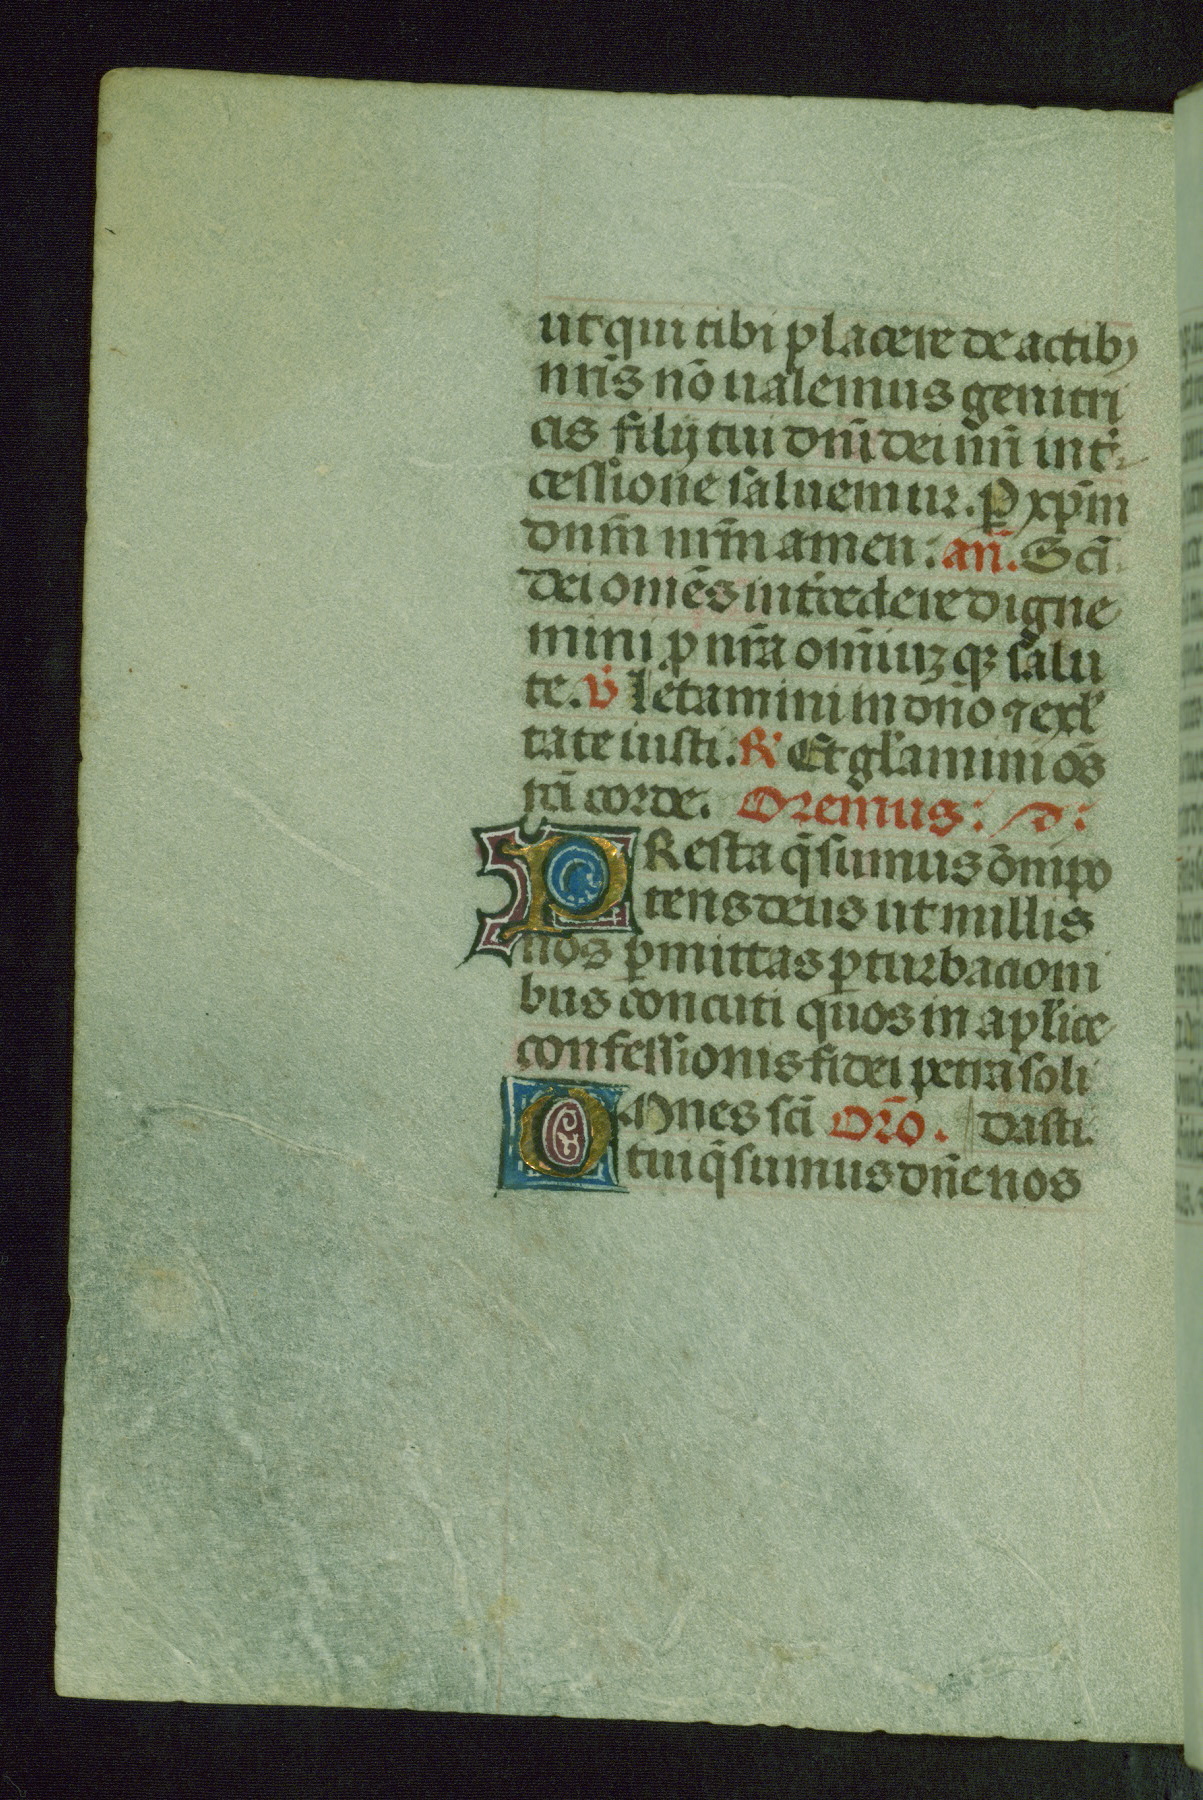 ut qui tibi placere de actibꝫ
nr̃is nõ ualemus genitri
cis filij tui dñi dei nr̃i int̃
cessione saluemur. ꝑ xp̃m
dnm̃ nrm̃ amen: añ. Scĩ
dei omẽs int̃cedere digne
mini ꝓ nr̃a omĩuꝫ qꝫ salu
te. v̾ letamini in dño ⁊ exl̾
tate iusti. R̾ Et gl̃amini oẽs
rcĩ corde. Oremus: d:
PResta q̃sumus õmpo
tens deus ut nullis
nos ꝑmittas ꝑturbacioni
bus concuti quos in apl̃ice
confessionis fidei petra soli
OMnes scĩ Orõ. dasti.
tui q̃sumus dñe nos